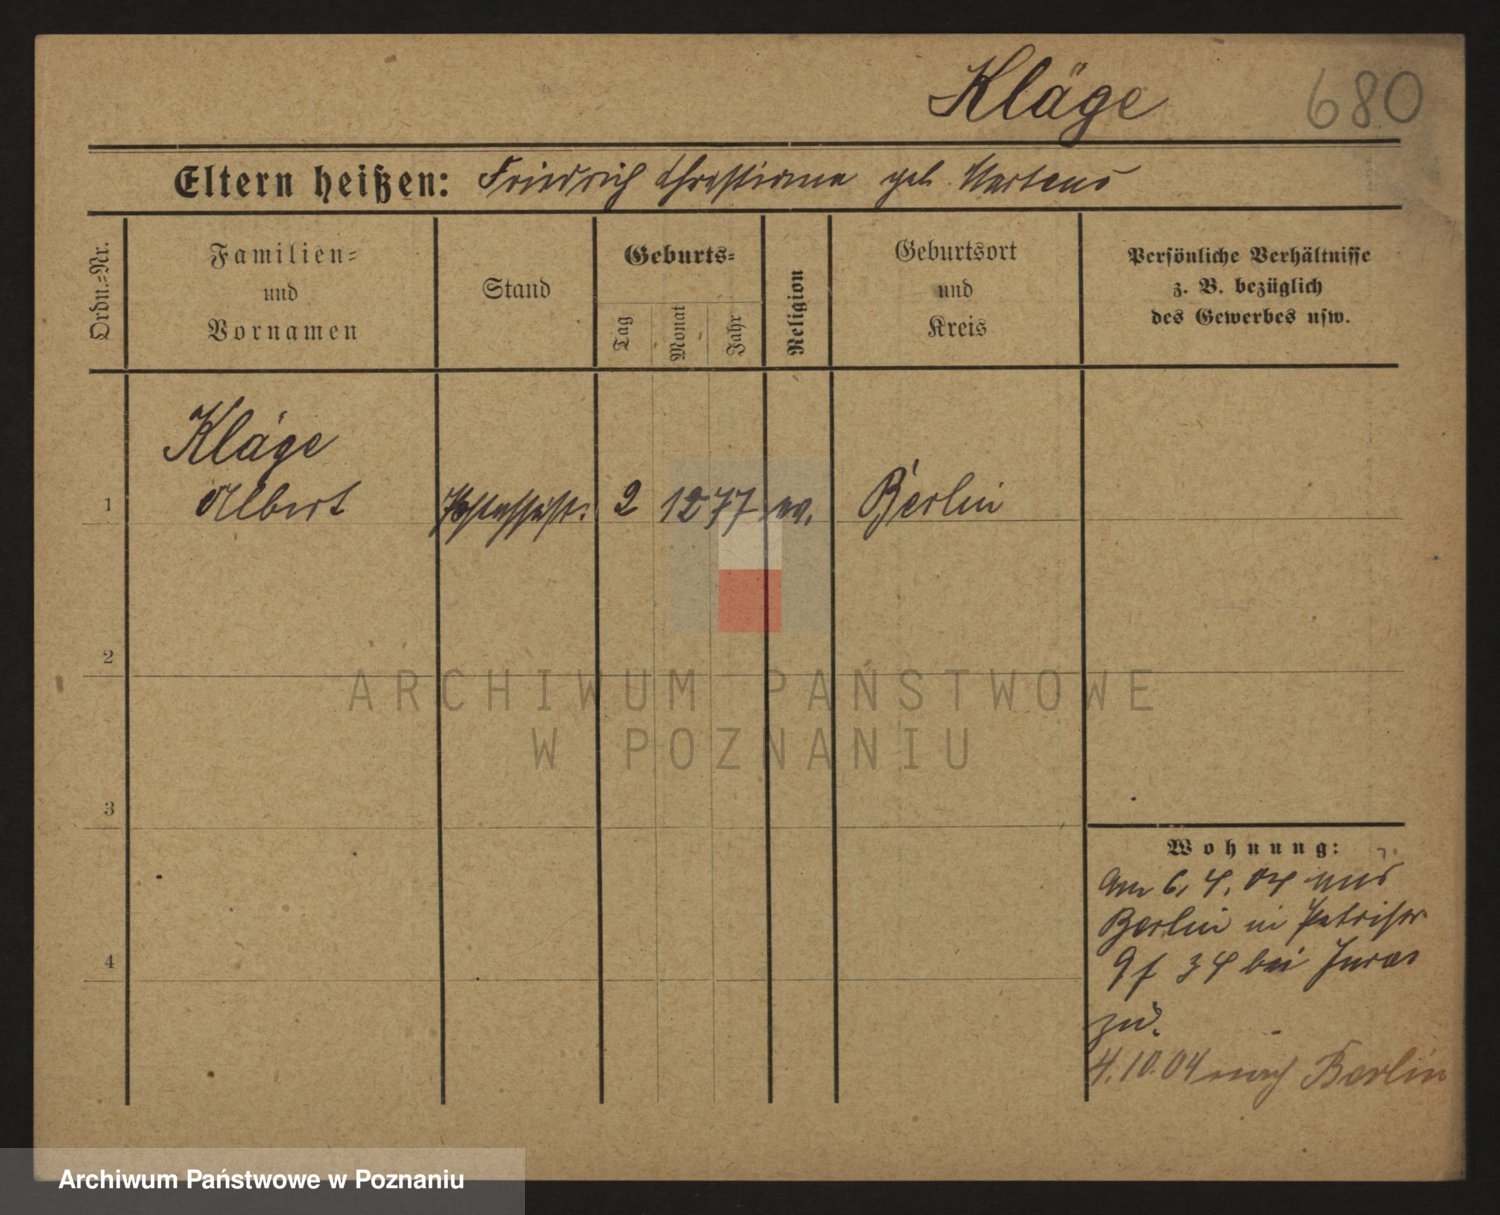 Kläge 680
Eltern heißen: Friedrich Christiane geb. Martens
Ordn.-Nr.
Familien-
und
Vornamen
Stand
Geburts-
Tag
Monat
Jahr
Religion
Geburtsort
und
Kreis
Persönliche Verhältnisse
z. B. bezüglich
des Gewerbes usw.
Kläge
1 Albert Postassist. 2 12 77 ev. Berlin
2
3
4
Wohnung:
Am 6. 4. 04 aus
Berlin in
34 bei
zu.
4.10.04 nach Berlin
ARCHIWUM PAŃSTWOWE
W POZNANIU
Archiwum Państwowe w Poznaniu